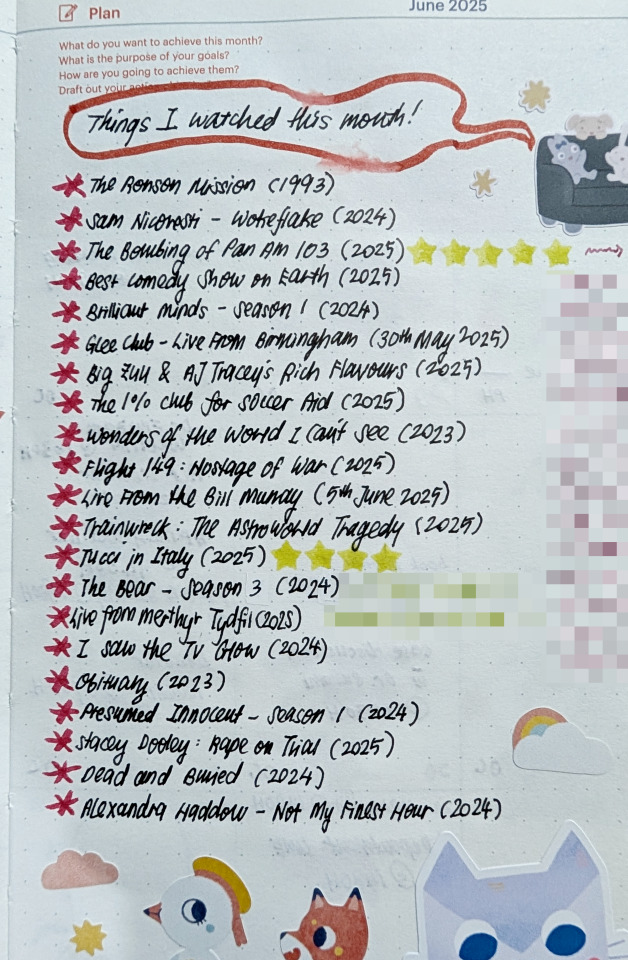 Plan
June 2025
What do you want to achieve this month?
What is the purpose of your goals?
How are you going to achieve them?
Draft out your
Things I watched this month!
The Ronson Mission (1993)
Sam Nicoresti - Wokeflake (2024)
The Bombing of Pan Am 103 (2025)
Best Comedy Show on Earth (2025)
Brilliant Minds - Season 1 (2024)
Glee Club - Live From Birmingham (30th May 2025)
Big Zuu & AJ Tracey's Rich Flavours (2025)
The 1% Club for Soccer Aid (2025)
Wonders of the World I Can't See (2023)
Flight 149: Hostage of War (2025)
Live From the Bill Murray (5th June 2025)
Trainwreck: The Astroworld Tragedy (2025)
Tucci in Italy (2025)
The Bear - Season 3 (2024)
Live from Merthyr Tydfil (2025)
I Saw the TV Glow (2024)
Obituary (2023)
Presumed Innocent - Season 1 (2024)
Stacey Dooley: Rape on Trial (2025)
Dead and Buried (2024)
Alexandra Haddow - Not My Finest Hour (2024)